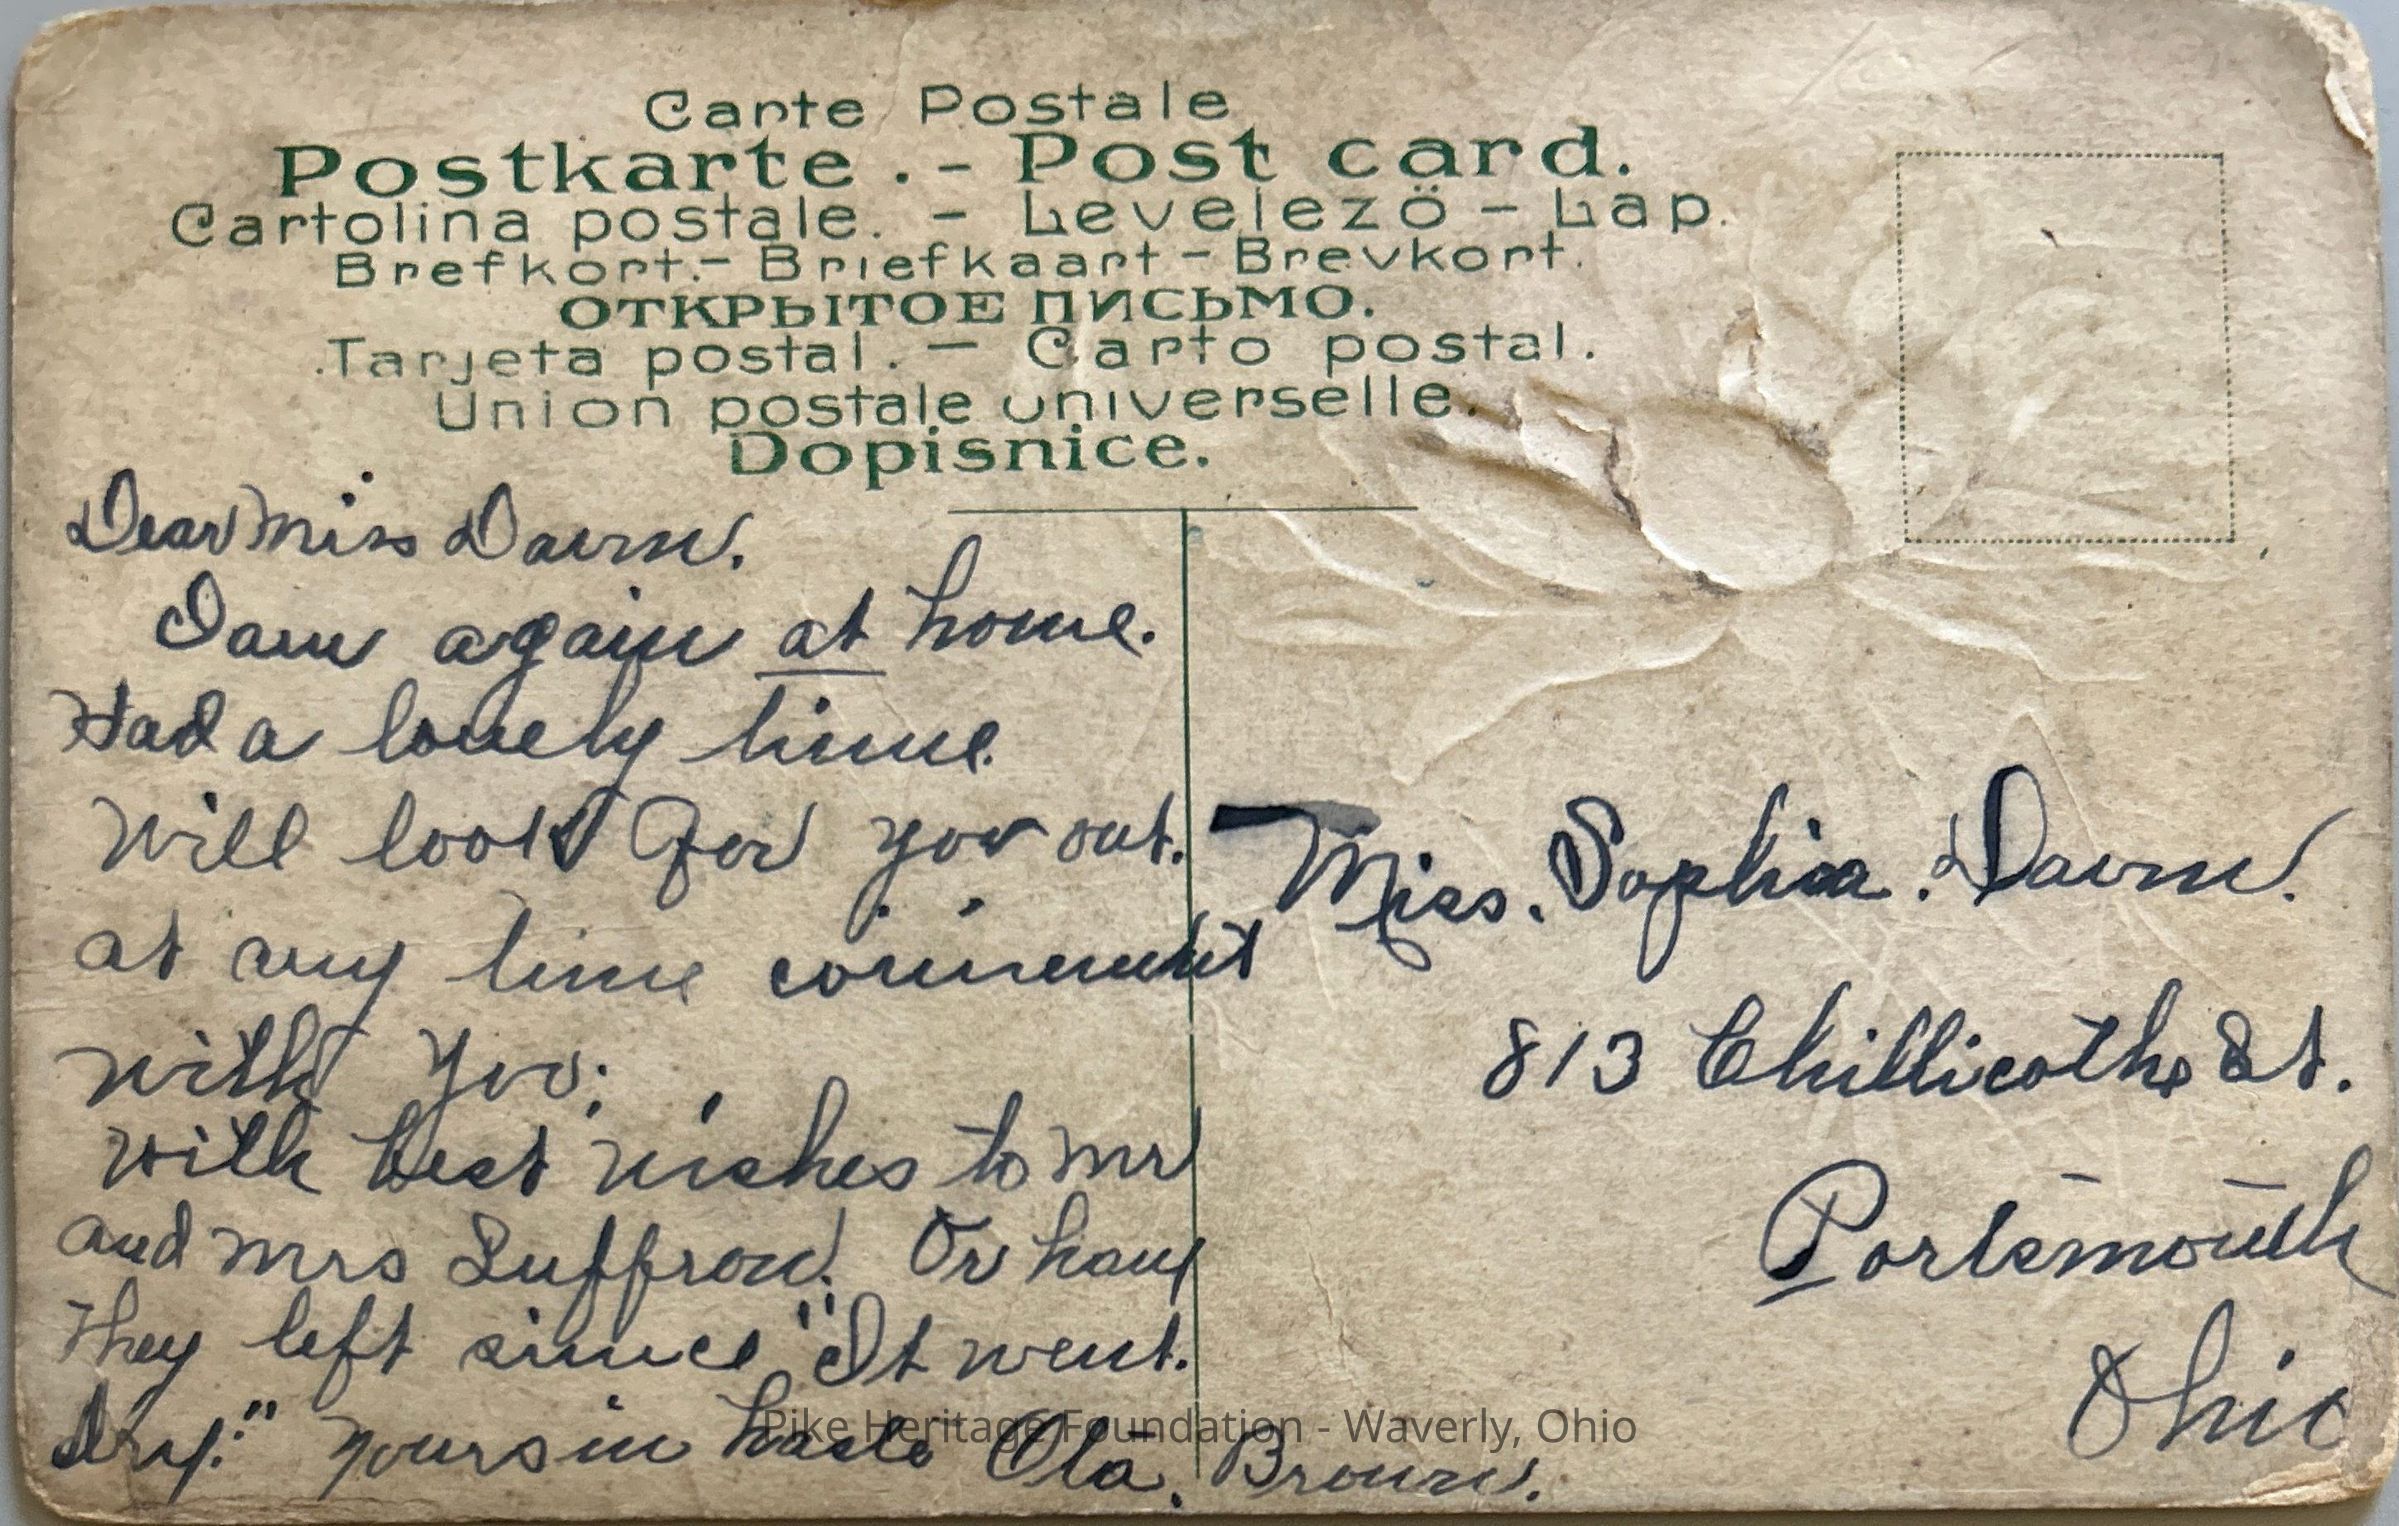 Carte Postale
Postkarte . - Post card.
Cartolina postale. - Levelezö - Lap.
Brefkort. - Briefkaart - Brevkort.
ОТКРЫТОЕ ПИСЬМО.
Tarjeta postal. - Carto postal.
Union postale universelle.
Dopisnice.
Dear Miss Dawn.
I am again at home.
Had a lovely time.
Will look for you out.
at any time convenient
with you.
with best wishes to Mr
and Mrs Or have
they left since "It went.
dry." Yours in haste Ola. Brown.
Miss. Sophia. Dawn.
813 Chillicothe St.
Portsmouth
Ohio
Pike Heritage Foundation - Waverly, Ohio